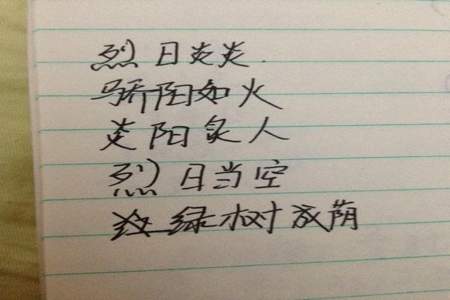 烈日炎炎
骄阳如火
炎阳炙人
烈日当空
绿树成荫